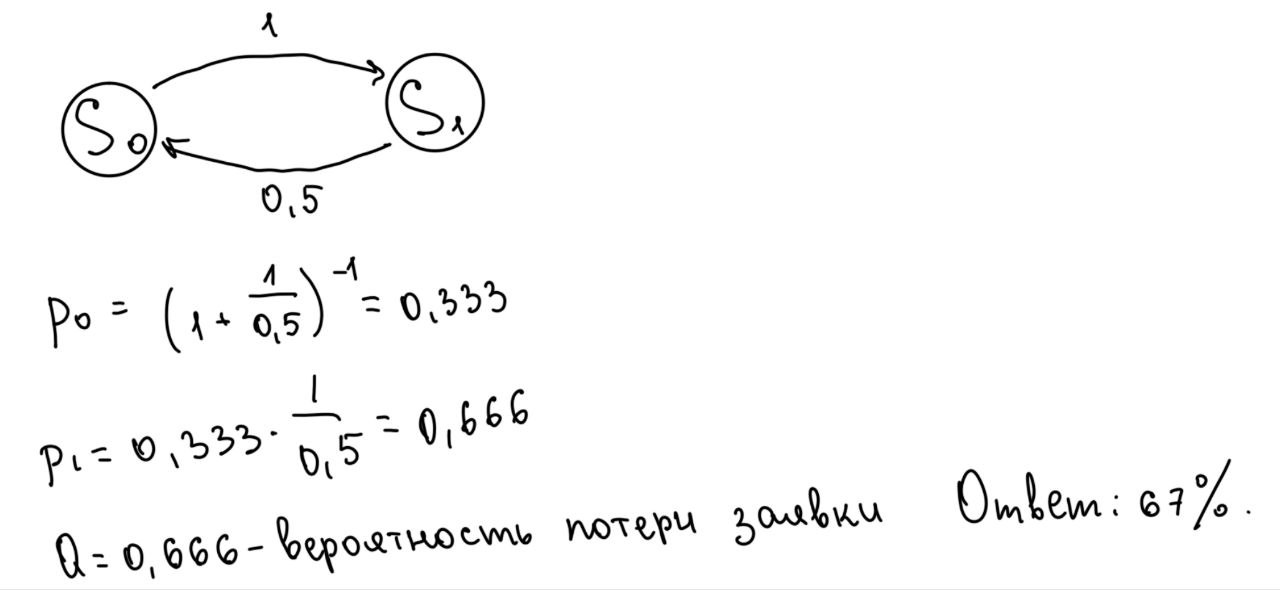 1
S₀ S₁
0,5
p₀ = (1 + 1/0,5)⁻¹ = 0,333
p₁ = 0,333 · 1/0,5 = 0,666
Q = 0,666 - вероятность потери заявки Ответ: 67%.